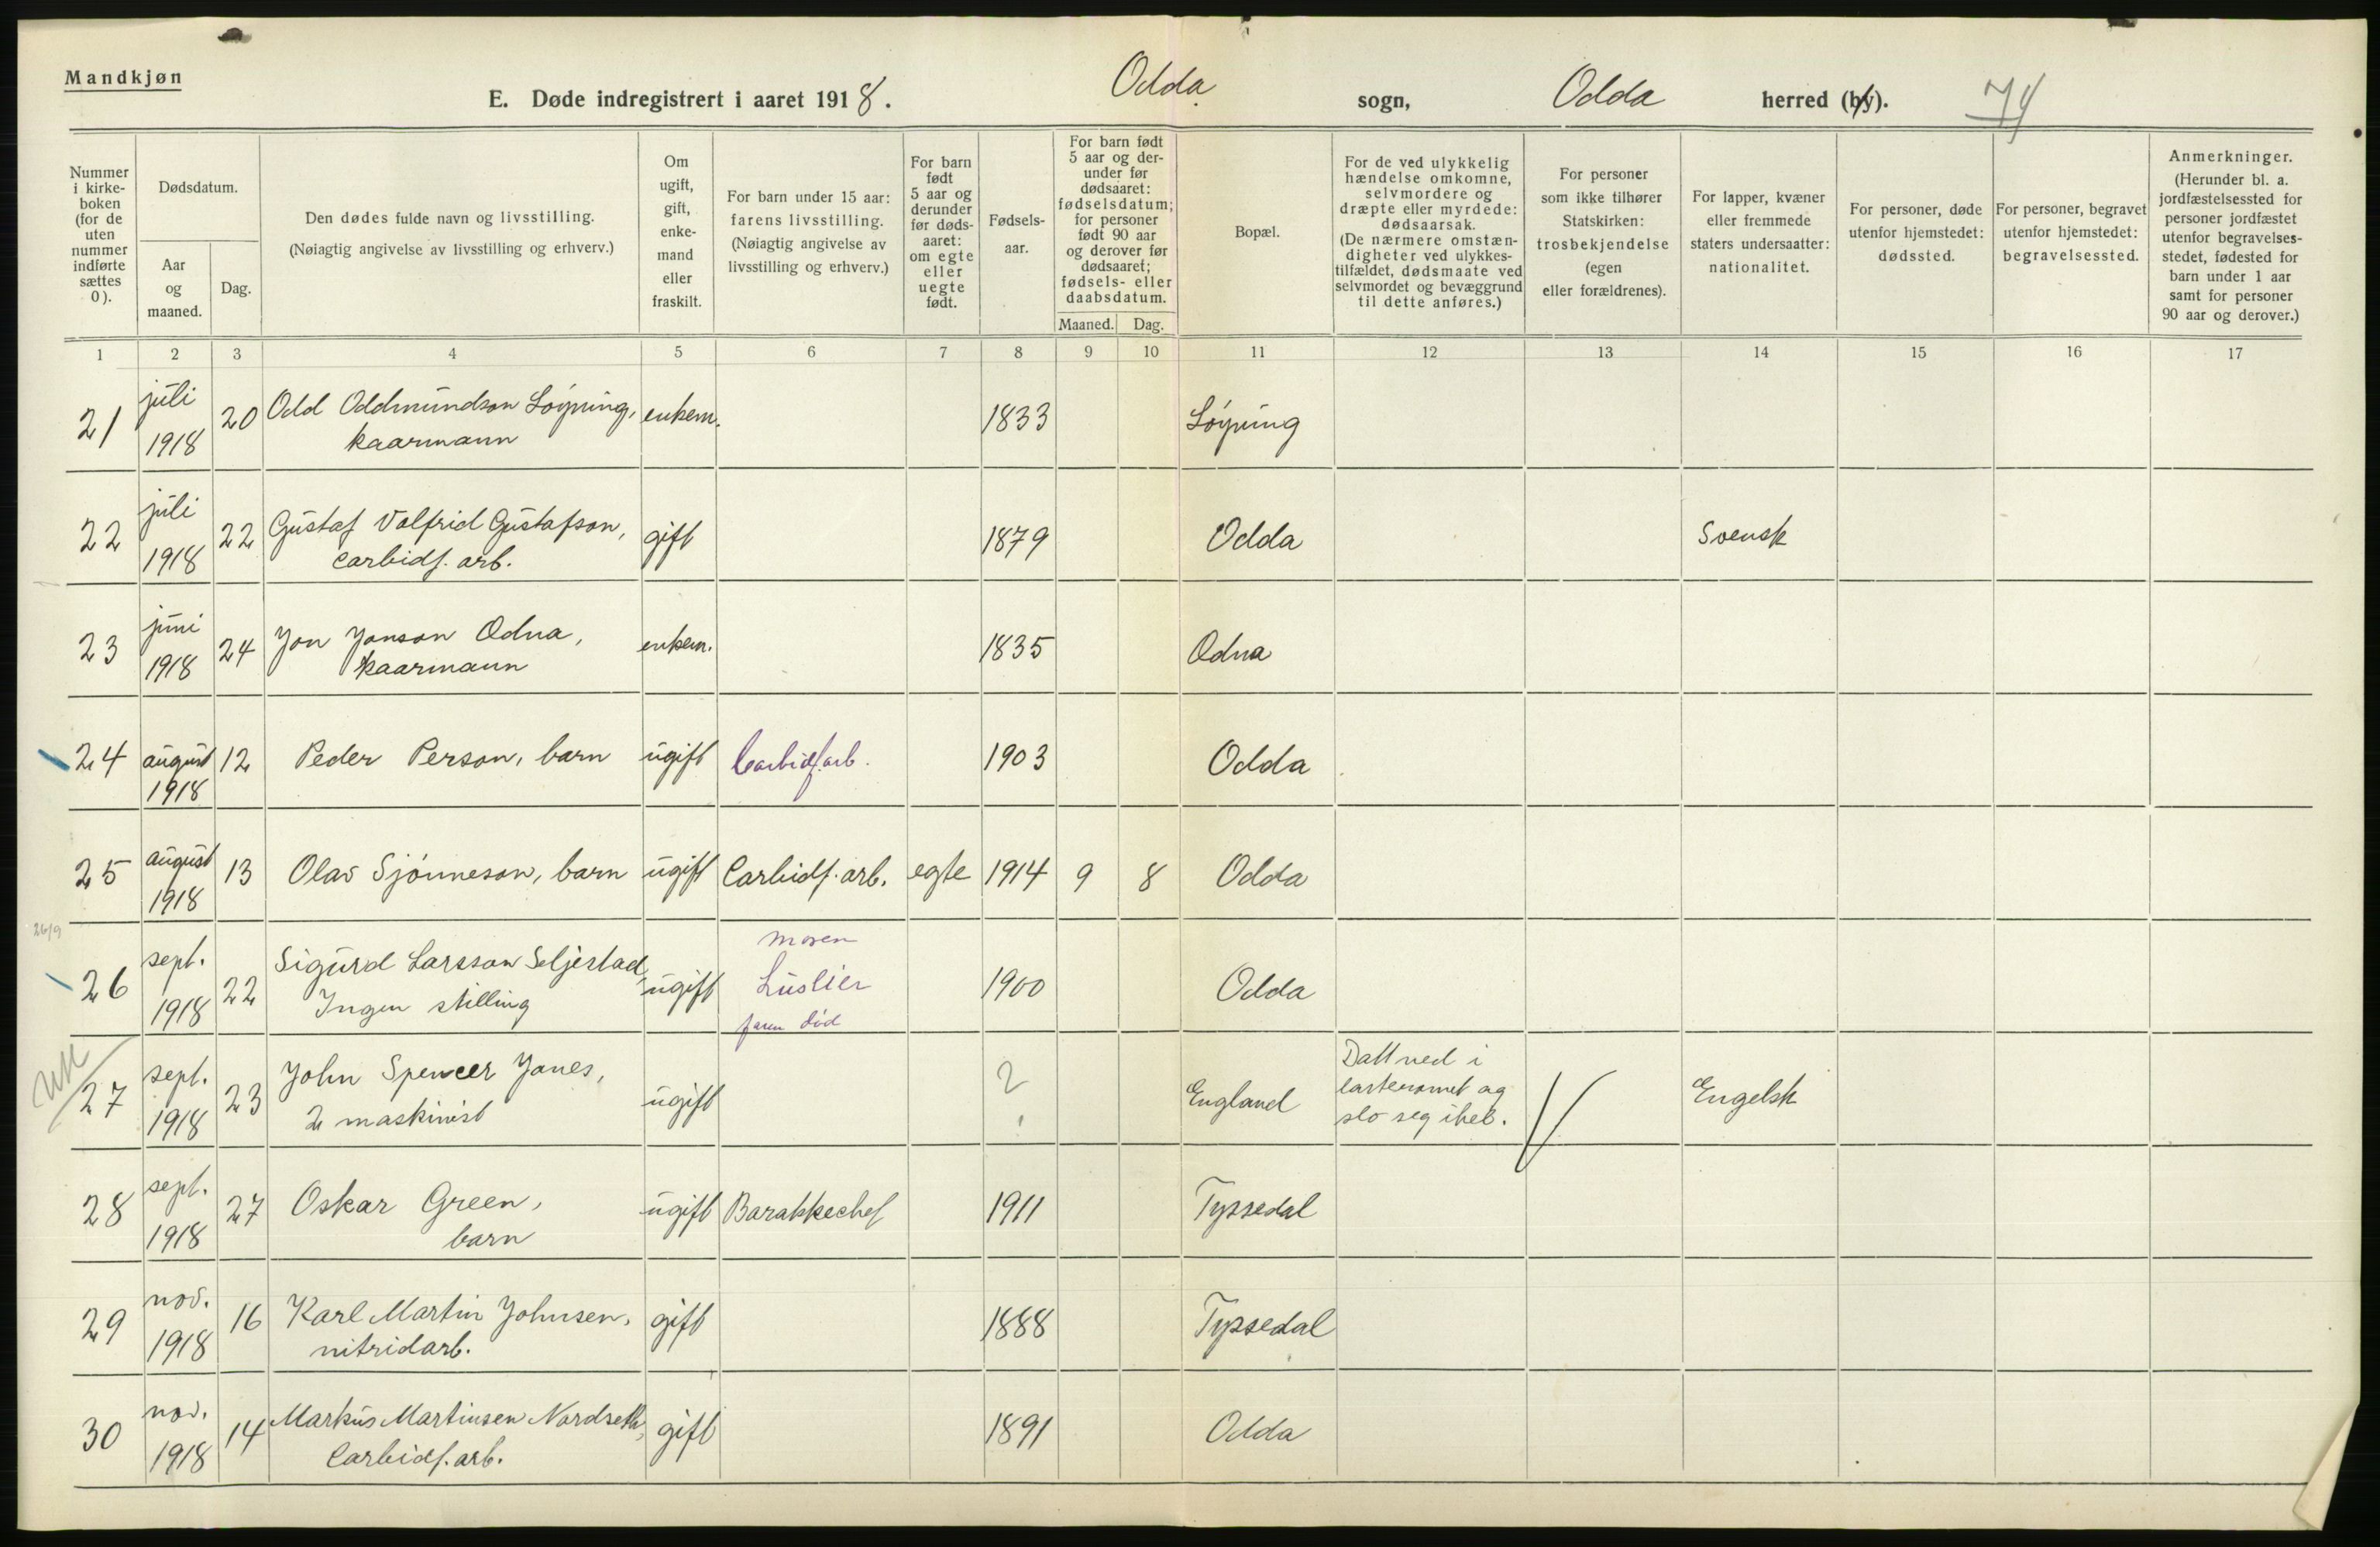 Mandkjøn
E. Døde indregistrert i aaret 1918. Odda sogn, Odda herred (by). 74
Nummer i kirke-boken (for de uten nummer indførte sættes 0).
Dødsdatum.
Aar og maaned.
Dag.
Den dødes fulde navn og livsstilling.
(Nøiagtig angivelse av livsstilling og erhverv.)
Om ugift, gift, enke-mand eller fraskilt.
For barn under 15 aar: farens livsstilling. (Nøiagtig angivelse av livsstilling og erhverv.)
For barn født 5 aar og derunder før døds-aaret: om egte eller uegte født.
Fødsels-aar.
For barn født 5 aar og der-under før dødsaaret: fødselsdatum; for personer født 90 aar og derover før dødsaaret; fødsels- eller daabsdatum.
Maaned. Dag.
Bopæl.
For de ved ulykkelig hændelse omkomne, selvmordere og dræpte eller myrdede: dødsaarsak. (De nærmere omstæn-digheter ved ulykkes-tilfældet, dødsmaate ved selvmordet og bevæggrund til dette anføres.)
For personer som ikke tilhører Statskirken: trosbekjendelse (egen eller forældrenes).
For lapper, kvæner eller fremmede staters undersaatter: nationalitet.
For personer, døde utenfor hjemstedet: dødssted.
For personer, begravet utenfor hjemstedet: begravelsessted.
Anmerkninger. (Herunder bl. a. jordfæstelsessted for personer jordfæstet utenfor begravelses-stedet, fødested for barn under 1 aar samt for personer 90 aar og derover.)
1 2 3 4 5 6 7 8 9 10 11 12 13 14 15 16 17
21 juli 1918 20 Odd Oddmundson Løyning, kaarmann enkem. 1833 Løyning
22 juli 1918 22 Gustaf Valfrid Gustafson, carbidf. arb. gift 1879 Odda Svensk
23 juni 1918 24 Jon Jonson Odna, kaarmann enkem. 1835 Odna
24 august 1918 12 Peder Person, barn ugift Carbidf.arb. 1903 Odda
25 august 1918 13 Olav Sjónneson, barn ugift Carbidf. arb. egte 1914 9 8 Odda
26/9
26 sept. 1918 22 Sigurd Larsson Seljestad, Ingen stilling ugift moren faren død 1900 Odda
27 sept. 1918 23 John Spencer Jones, 2 maskinist ugift ? England Datt ned i lasteromet og slo seg ihel. Engelsk
28 sept. 1918 27 Oskar Green, barn ugift Barakkechef 1911 Tyssedal
29 nov. 1918 16 Karl Martin Johnsen, nitridarb. gift 1888 Tyssedal
30 nov. 1918 14 Markus Martinsen Nordseth, Carbidf. arb. gift 1891 Odda